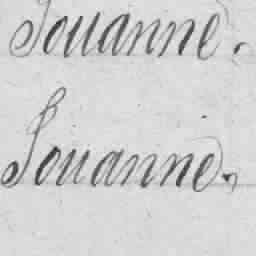 Jouanne.
Jouanne.